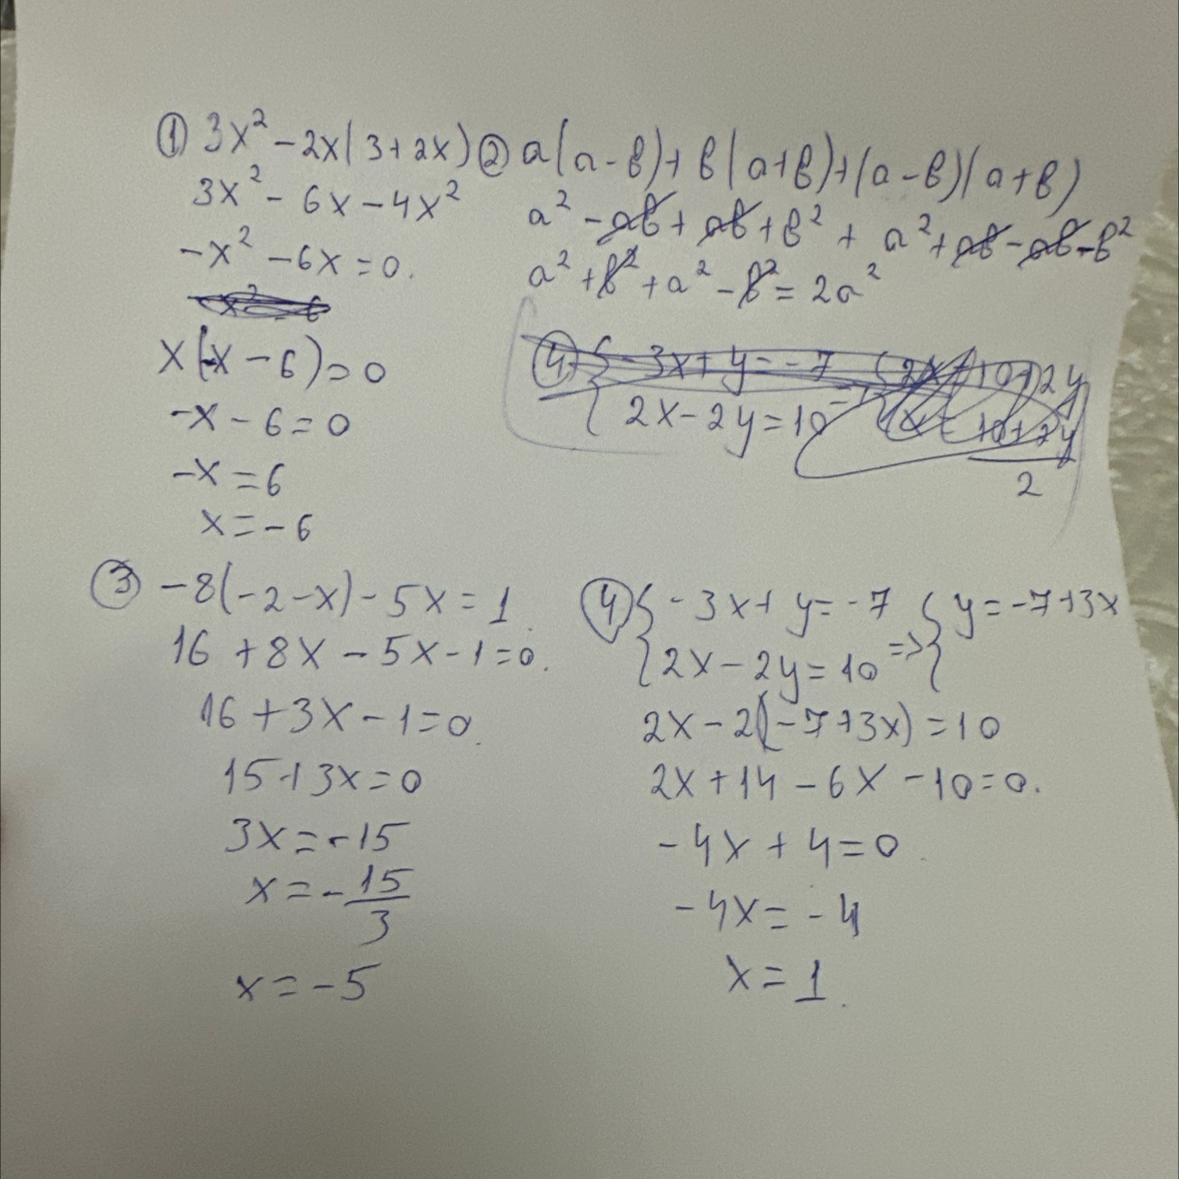 ① 3x² - 2x(3 + 2x)
3x² - 6x - 4x²
-x² - 6x = 0.
x(-x - 6) = 0
-x - 6 = 0
-x = 6
x = -6
② a(a - b) + b(a + b) + (a - b)(a + b)
a² - ab + ab + b² + a² + ab - ab - b²
a² + b² + a² - b² = 2a²
④ { -3x + y = -7
{ 2x - 2y = 10
10 + 2y
2
③ -8(-2 - x) - 5x = 1.
16 + 8x - 5x - 1 = 0.
16 + 3x - 1 = 0.
15 + 3x = 0
3x = -15
x = -15/3
x = -5
④ { -3x + y = -7 { y = -7 + 3x
{ 2x - 2y = 10 => {
2x - 2(-7 + 3x) = 10
2x + 14 - 6x - 10 = 0.
-4x + 4 = 0.
-4x = -4
x = 1.